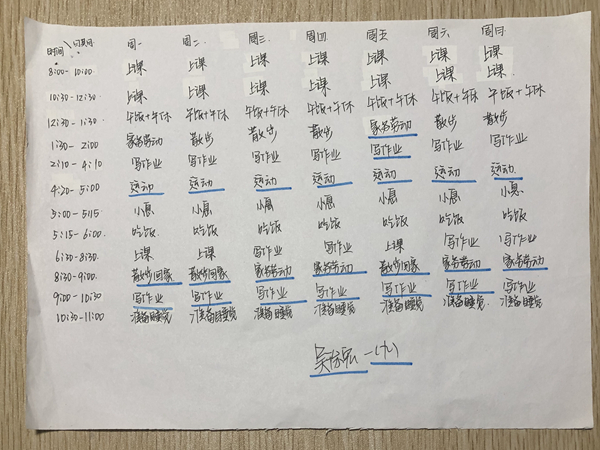 时间 日期 周一 周二 周三 周四 周五 周六 周日
8:00-10:00 上课 上课 上课 上课 上课 上课 上课
10:30-12:30 上课 上课 上课 上课 上课 上课 上课
12:30-1:30 午饭+午休 午饭+午休 午饭+午休 午饭+午休 午饭+午休 午饭+午休 午饭+午休
1:30-2:00 家务劳动 散步 散步 散步 家务劳动 散步 散步
2:10-4:10 写作业 写作业 写作业 写作业 写作业 写作业 写作业
4:20-5:00 运动 运动 运动 运动 运动 运动 运动
5:00-5:15 小息 小息 小息 小息 小息 小息 小息
5:15-6:00 吃饭 吃饭 吃饭 吃饭 吃饭 吃饭 吃饭
6:30-8:30 上课 上课 写作业 写作业 上课 写作业 写作业
8:30-9:00 散步回家 散步回家 家务劳动 家务劳动 散步回家 家务劳动 家务劳动
9:00-10:30 写作业 写作业 写作业 写作业 写作业 写作业 写作业
10:30-11:00 准备睡觉 准备睡觉 准备睡觉 准备睡觉 准备睡觉 准备睡觉 准备睡觉
一(九)